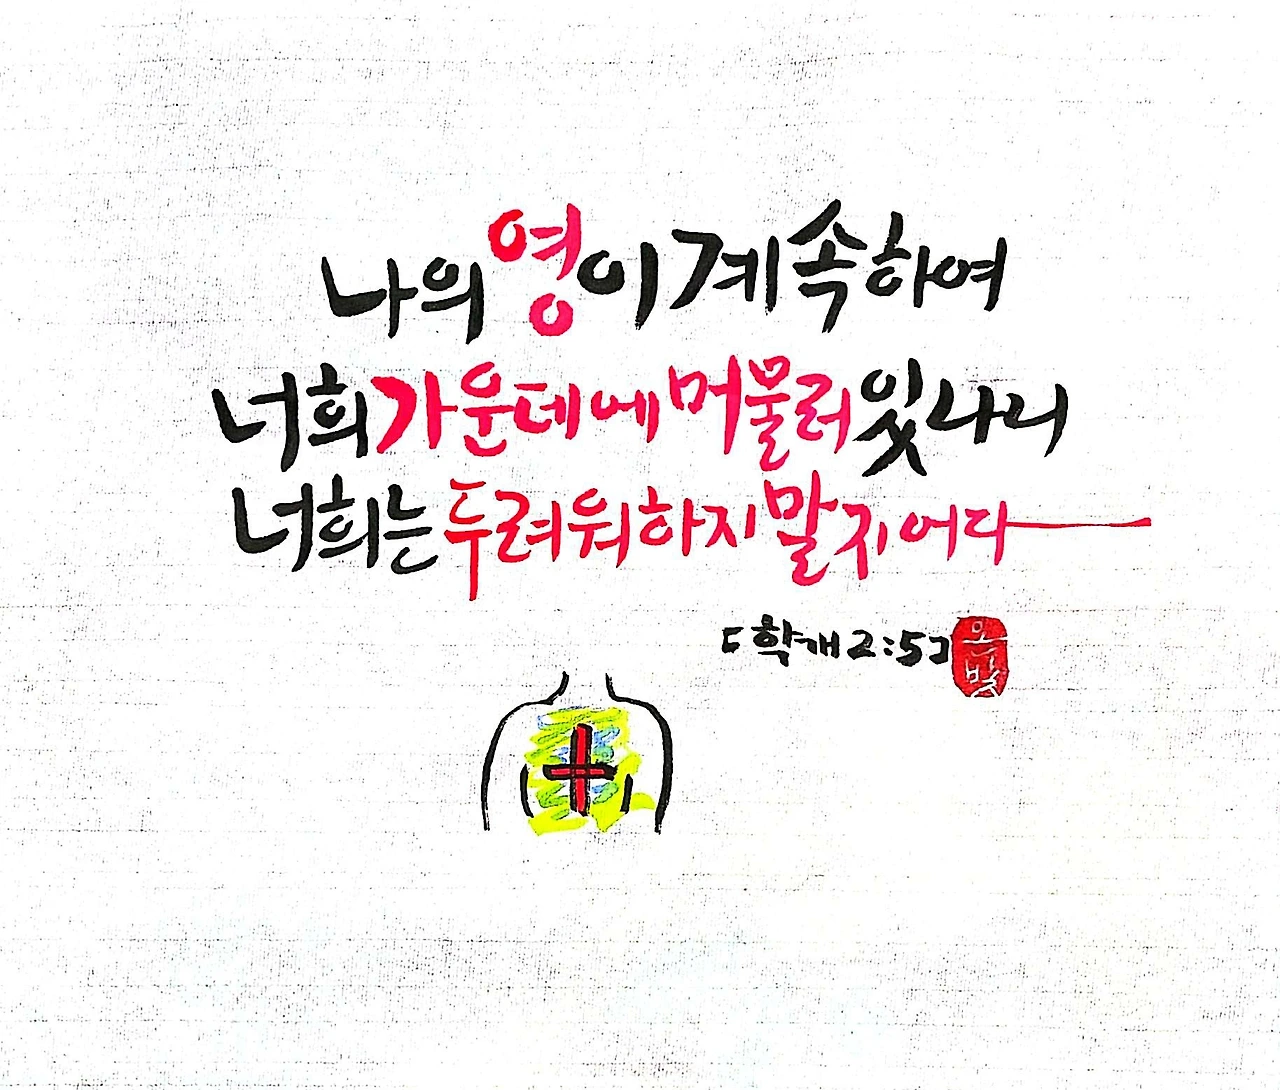 나의 영이 계속하여
너희 가운데에 머물러 있나니
너희는 두려워하지 말지어다
「학개 2:5」